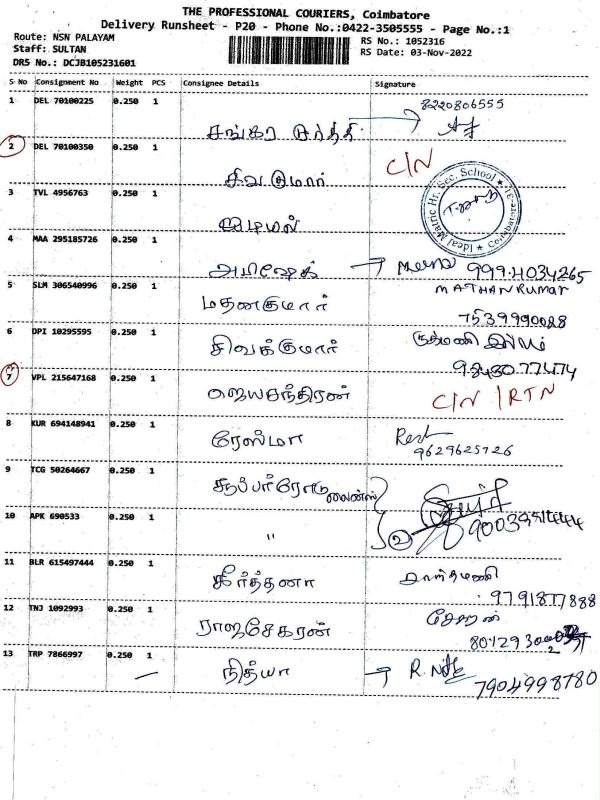 THE PROFESSIONAL COURIERS, Coimbatore
Delivery Runsheet - P20 - Phone No.:0422-3505555 - Page No.:1
Route: NSN PALAYAM
RS No.: 1052316
Staff: SULTAN
RS Date: 03-Nov-2022
DRS No.: DCJB105231601
S No Consignment No Weight PCS Consignee Details Signature
1 DEL 70100225 0.250 1
8220806555
சங்கர மூர்த்தி
2 DEL 70100350 0.250 1
C/N
சிவகுமார்
3 TVL 4956763 0.250 1
Ideal Matric Hr. Sec. School * Coimbatore-31. *
4 MAA 295185726 0.250 1
அபிஷேக்
5 SLM 306540996 0.250 1
MATHANKUMAR
மதனகுமார்
7539990028
6 DPI 10295595 0.250 1
சிவக்குமார்
ருக்மணி
98430 77474
7 VPL 215647168 0.250 1
ஜெயசந்திரன்
C/N / RTN
8 KUR 694148941 0.250 1
ரேஸ்மா
9629625726
9 TCG 50264667 0.250 1
லைன்ஸ்
10 APK 690533 0.250 1
"
2
11 BLR 615497444 0.250 1
கீர்த்தனா
9791877888
12 TNJ 1092993 0.250 1
ராஜசேகரன்
13 TRP 7866997 0.250 1
நித்யா
7904998780